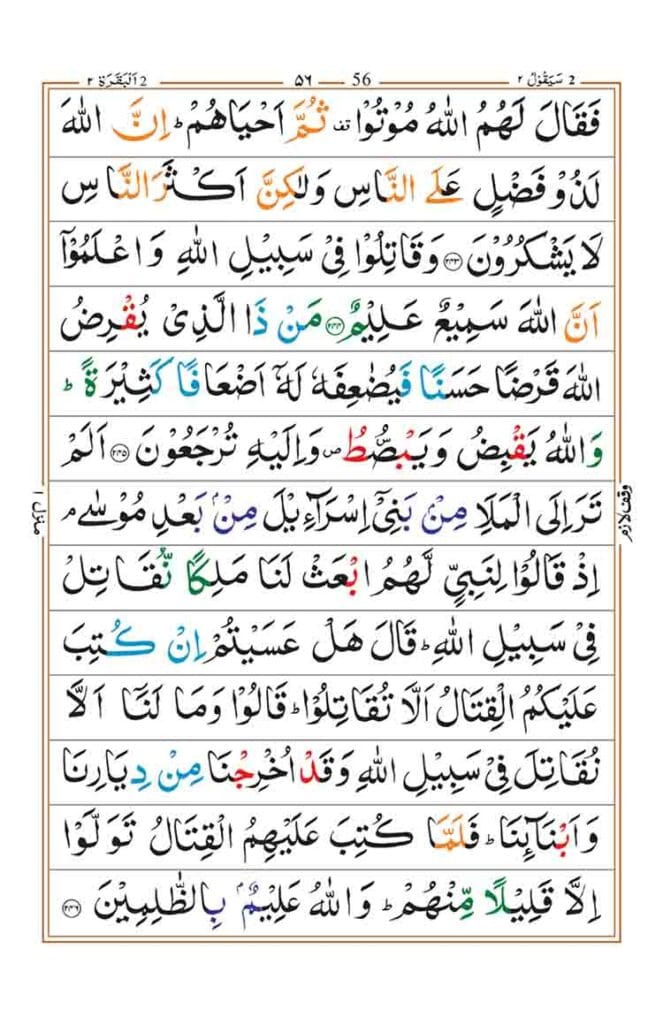 2 سَيَقُوْلُ ٢ 56 ٥٦ 2 اَلْبَقَرَة ٢
فَقَالَ لَهُمُ اللّٰهُ مُوْتُوْا قف ثُمَّ اَحْيَاهُمْ ؕ اِنَّ اللّٰهَ
لَذُوْ فَضْلٍ عَلَى النَّاسِ وَلٰكِنَّ اَكْثَرَ النَّاسِ
لَا يَشْكُرُوْنَ ﴿٢٤٣﴾ وَقَاتِلُوْا فِيْ سَبِيْلِ اللّٰهِ وَاعْلَمُوْٓا
اَنَّ اللّٰهَ سَمِيْعٌ عَلِيْمٌ ﴿٢٤٤﴾ مَنْ ذَا الَّذِيْ يُقْرِضُ
اللّٰهَ قَرْضًا حَسَنًا فَيُضٰعِفَهٗ لَهٗٓ اَضْعَافًا كَثِيْرَةً ؕ
وَاللّٰهُ يَقْبِضُ وَيَبْصُۜطُ ص وَاِلَيْهِ تُرْجَعُوْنَ ﴿٢٤٥﴾ اَلَمْ
تَرَ اِلَى الْمَلَاِ مِنْۢ بَنِيْٓ اِسْرَآءِيْلَ مِنْۢ بَعْدِ مُوْسٰى ۘ
اِذْ قَالُوْا لِنَبِيٍّ لَّهُمُ ابْعَثْ لَنَا مَلِكًا نُّقَاتِلْ
فِيْ سَبِيْلِ اللّٰهِ ؕ قَالَ هَلْ عَسَيْتُمْ اِنْ كُتِبَ
عَلَيْكُمُ الْقِتَالُ اَلَّا تُقَاتِلُوْا ؕ قَالُوْا وَمَا لَنَآ اَلَّا
نُقَاتِلَ فِيْ سَبِيْلِ اللّٰهِ وَقَدْ اُخْرِجْنَا مِنْ دِيَارِنَا
وَاَبْنَآئِنَا ؕ فَلَمَّا كُتِبَ عَلَيْهِمُ الْقِتَالُ تَوَلَّوْا
اِلَّا قَلِيْلًا مِّنْهُمْ ؕ وَاللّٰهُ عَلِيْمٌۢ بِالظّٰلِمِيْنَ ﴿٢٤٦﴾
وقف لازم
منزل ١